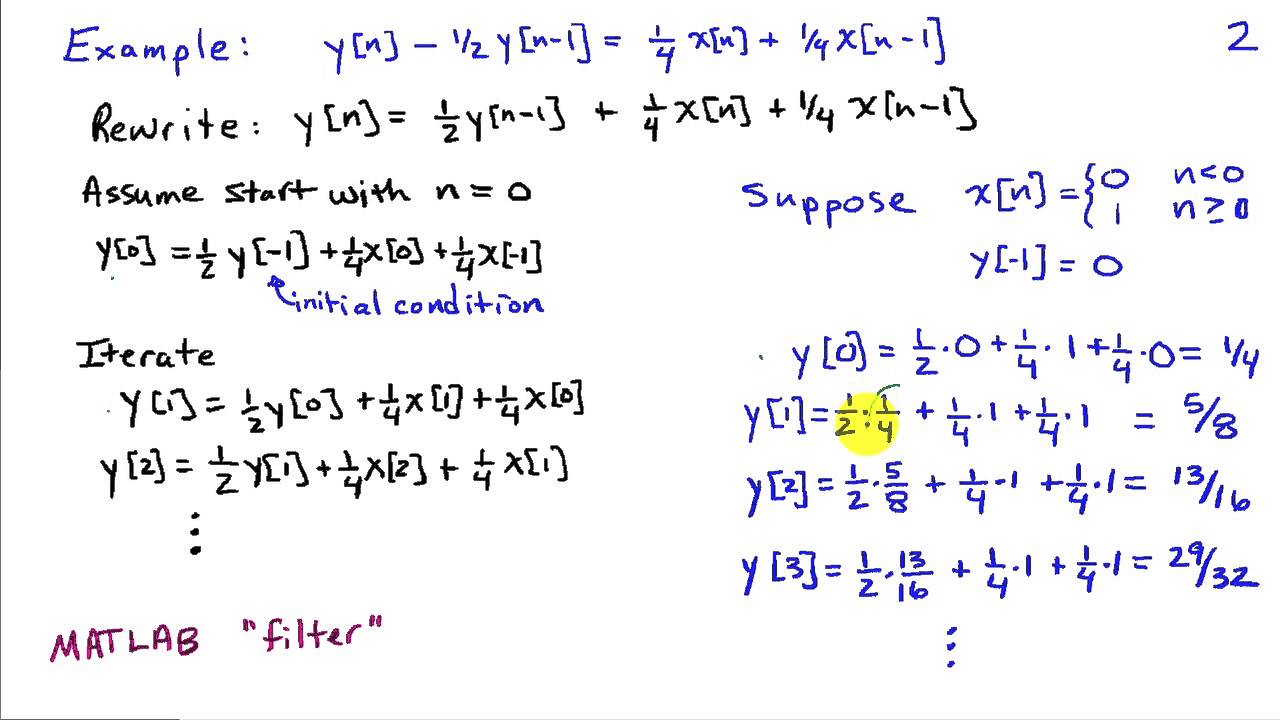 Example: y[n] - 1/2 y[n-1] = 1/4 x[n] + 1/4 x[n-1]
2
Rewrite: y[n] = 1/2 y[n-1] + 1/4 x[n] + 1/4 x[n-1]
Assume start with n = 0
y[0] = 1/2 y[-1] + 1/4 x[0] + 1/4 x[-1]
initial condition
Iterate
y[1] = 1/2 y[0] + 1/4 x[1] + 1/4 x[0]
y[2] = 1/2 y[1] + 1/4 x[2] + 1/4 x[1]
⋮
MATLAB "filter"
Suppose x[n] = { 0 n<0
1 n≥0
y[-1] = 0
y[0] = 1/2 · 0 + 1/4 · 1 + 1/4 · 0 = 1/4
y[1] = 1/2 · 1/4 + 1/4 · 1 + 1/4 · 1 = 5/8
y[2] = 1/2 · 5/8 + 1/4 · 1 + 1/4 · 1 = 13/16
y[3] = 1/2 · 13/16 + 1/4 · 1 + 1/4 · 1 = 29/32
⋮